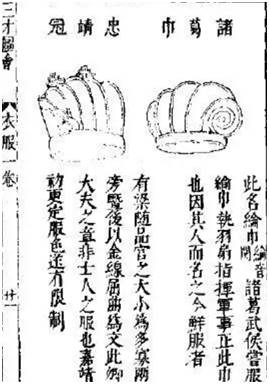 諸葛巾
此名綸巾綸音關諸葛武侯嘗服
綸巾執羽扇指揮軍事正此巾
也因其人而名之今鮮服者
忠靖冠
有梁隨品官之大小為多寡兩
旁暨後以金線屈曲為文此卿
大夫之章非士人之服也嘉靖
初更定服色遂有限制
三才圖會 衣服一卷